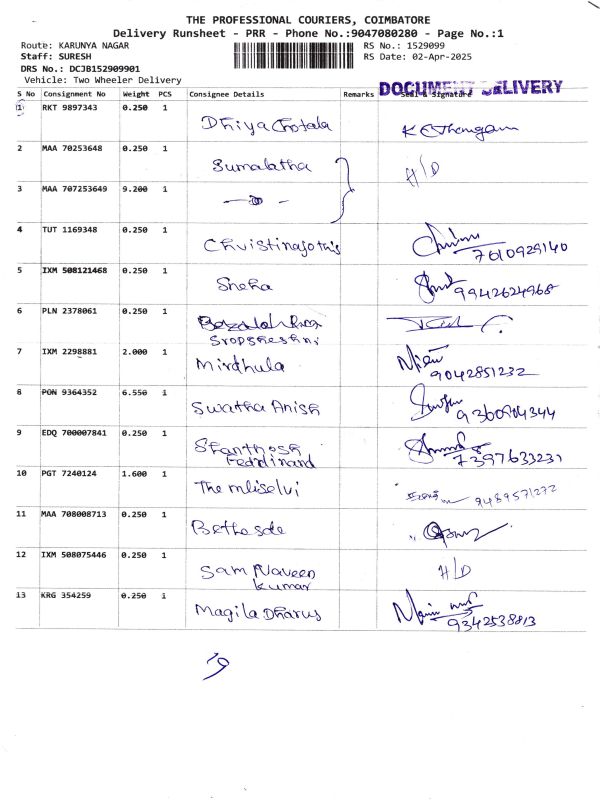 THE PROFESSIONAL COURIERS, COIMBATORE
Delivery Runsheet - PRR - Phone No.:9047080280 - Page No.:1
Route: KARUNYA NAGAR RS No.: 1529099
Staff: SURESH RS Date: 02-Apr-2025
DRS No.: DCJB152909901
Vehicle: Two Wheeler Delivery DOCUMENT DELIVERY
S No Consignment No Weight PCS Consignee Details Remarks Seal & Signature
1 RKT 9897343 0.250 1
Dhiya Chotala K E Thangam
2 MAA 70253648 0.250 1
Sumalatha H/D
3 MAA 707253649 9.200 1
4 TUT 1169348 0.250 1
Christinajothis 7010929140
5 IXM 508121468 0.250 1
Sneha 9942624968
6 PLN 2378061 0.250 1
7 IXM 2298881 2.000 1
Mirdhula 9042851232
8 PON 9364352 6.550 1
Swatha Anish 9360904344
9 EDQ 700007841 0.250 1
Shanthosh
Ferdinand 7397633231
10 PGT 7240124 1.600 1
9489571272
11 MAA 708008713 0.250 1
Bethesde
12 IXM 508075446 0.250 1
Sam Naveen H/D
kumar
13 KRG 354259 0.250 1
Magila Dharus 9342538813